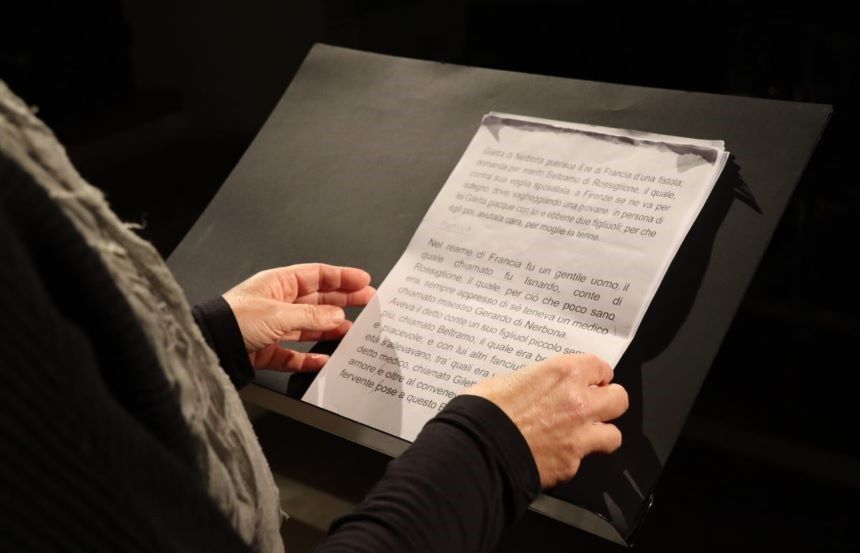 Giletta di Nerbona guerisce il re di Francia d'una fistola;
domanda per marito Beltramo di Rossiglione, il quale,
contra sua voglia sposatala, a Firenze se ne va per
isdegno, dove, vagheggiando una giovane, in persona di
lei Giletta giacque con lui e ebbene due figliuoli; per che
egli poi, avutala cara, per moglie la tenne.
Nel reame di Francia fu un gentile uomo il
quale chiamato fu Isnardo, conte di
Rossiglione, il quale, per ciò che poco sano
era, sempre appresso di sé teneva un medico
chiamato maestro Gerardo di Nerbona.
Aveva il detto conte un suo figliuol piccolo senza
più, chiamato Beltramo, il quale era
e piacevole; e con lui altri
età s'allevavano, tra' quali era
detto medico, chiamata
amore e oltre al
fervente pose a questo